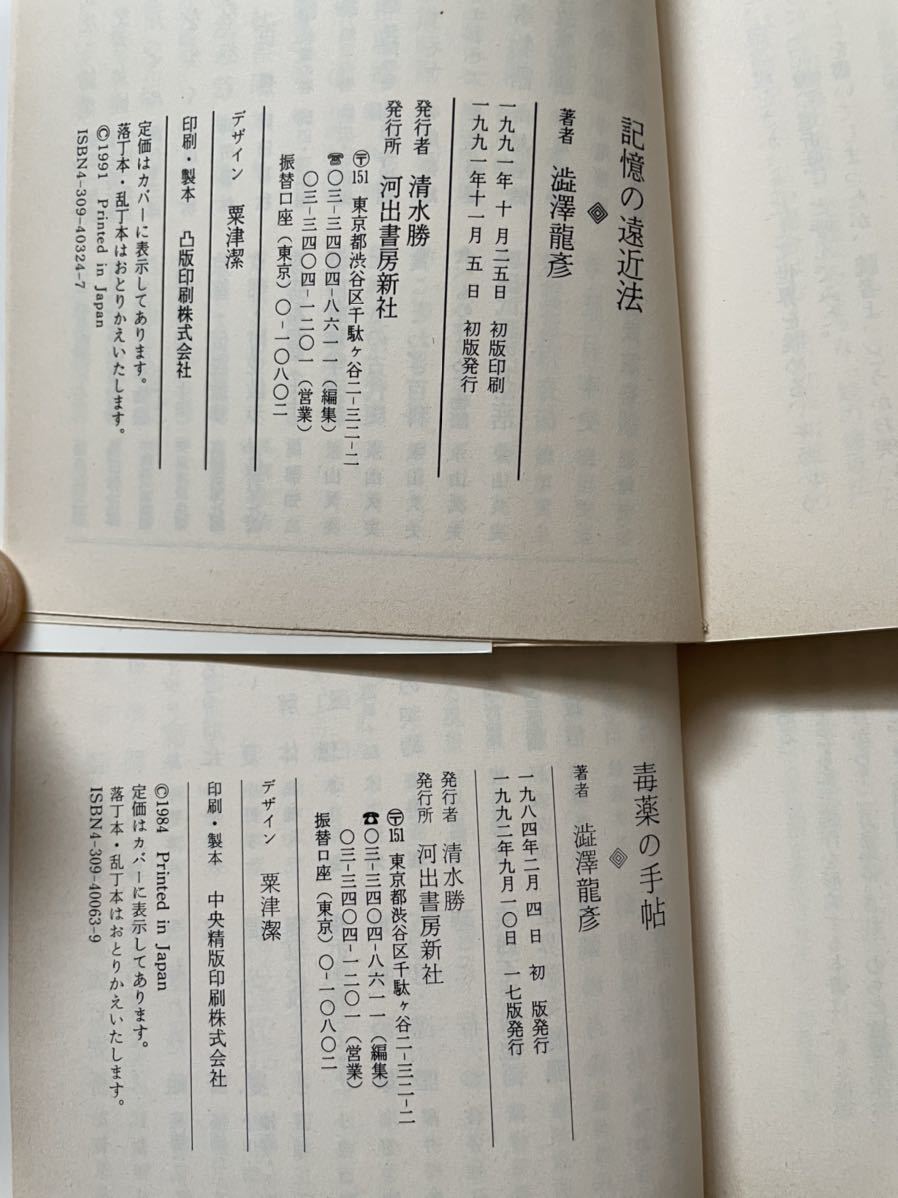 記憶の遠近法
著者 澁澤龍彥
一九九一年 十 月二五日 初版印刷
一九九一年十一月 五 日 初版発行
発行者 清水勝
発行所 河出書房新社
〒151 東京都渋谷区千駄ヶ谷二-三二-二
☎〇三-三四〇四-八六一一(編集)
〇三-三四〇四-一二〇一(営業)
振替口座(東京)〇-一〇八〇二
デザイン 粟津潔
印刷・製本 凸版印刷株式会社
定価はカバーに表示してあります。
落丁本・乱丁本はおとりかえいたします。
©1991 Printed in Japan
ISBN4-309-40324-7
毒薬の手帖
著者 澁澤龍彥
一九八四年二月 四 日 初 版発行
一九九二年九月一〇日 一七版発行
発行者 清水勝
発行所 河出書房新社
〒151 東京都渋谷区千駄ヶ谷二-三二-二
☎〇三-三四〇四-八六一一(編集)
〇三-三四〇四-一二〇一(営業)
振替口座(東京)〇-一〇八〇二
デザイン 粟津潔
印刷・製本 中央精版印刷株式会社
©1984 Printed in Japan
定価はカバーに表示してあります。
落丁本・乱丁本はおとりかえいたします。
ISBN4-309-40063-9